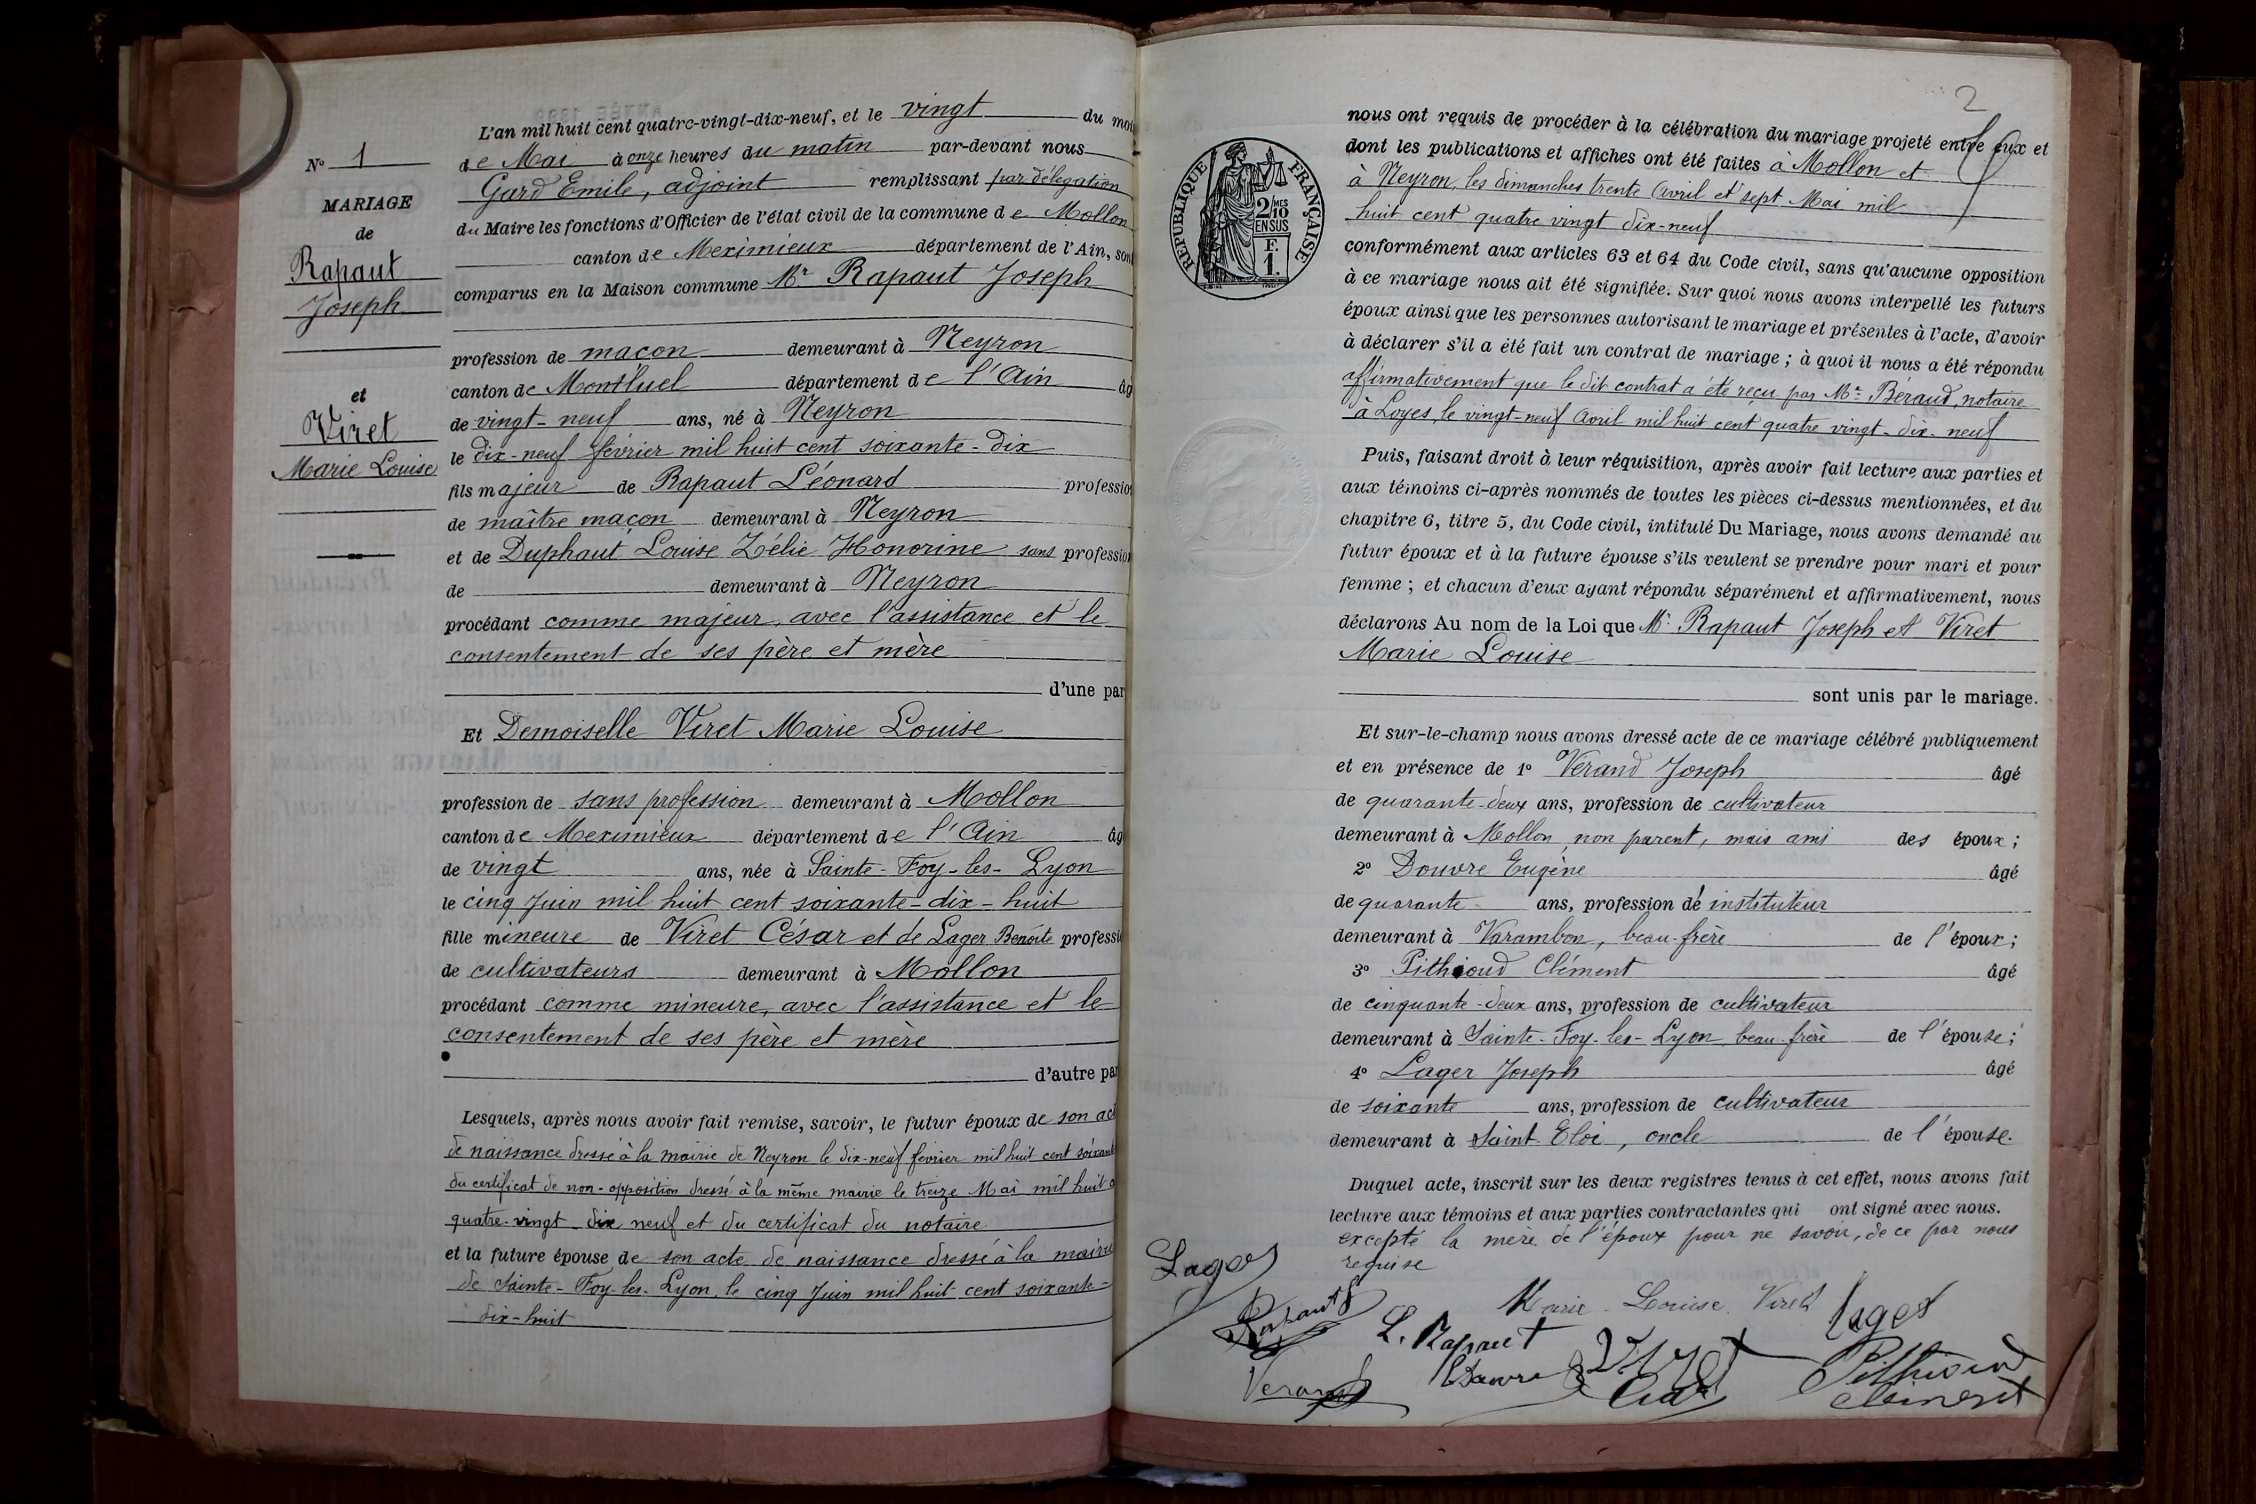 N° 1
MARIAGE
de
Rapaut
Joseph
et
Viret
Marie Louise
L'an mil huit cent quatre-vingt-dix-neuf, et le vingt du moi
de Mai à onze heures du matin par-devant nous
Gard Emile, adjoint remplissant par délégation
du Maire les fonctions d'Officier de l'état civil de la commune de Mollon
canton de Meximieux département de l'Ain, sont
comparus en la Maison commune Mr Rapaut Joseph
profession de maçon demeurant à Neyron
canton de Montluel département de l'Ain âg
de vingt-neuf ans, né à Neyron
le dix-neuf février mil huit cent soixante-dix
fils majeur de Rapaut Léonard profession
de maître maçon demeurant à Neyron
et de Duphaut Louise Zélie Honorine sans profession
de demeurant à Neyron
procédant comme majeur, avec l'assistance et le
consentement de ses père et mère
d'une par
Et Demoiselle Viret Marie Louise
profession de sans profession demeurant à Mollon
canton de Meximieux département de l'Ain âg
de vingt ans, née à Sainte-Foy-les-Lyon
le cinq Juin mil huit cent soixante-dix-huit
fille mineure de Viret César et de Lager Benoite professi
de cultivateurs demeurant à Mollon
procédant comme mineure, avec l'assistance et le
consentement de ses père et mère
d'autre par
Lesquels, après nous avoir fait remise, savoir, le futur époux de son act
de naissance dressé à la mairie de Neyron le dix-neuf février mil huit cent soixante
du certificat de non-opposition dressé à la même mairie le treize Mai mil huit c
quatre-vingt dix neuf et du certificat du notaire
et la future épouse de son acte de naissance dressé à la mairie
de Sainte-Foy-les-Lyon, le cinq Juin mil huit cent soixante-
dix-huit
2
RÉPUBLIQUE FRANÇAISE
2 MES
10
EN SUS
F.
1.
nous ont requis de procéder à la célébration du mariage projeté entre eux et
dont les publications et affiches ont été faites à Mollon et
à Neyron, les dimanches trente Avril et sept Mai mil
huit cent quatre vingt dix-neuf
conformément aux articles 63 et 64 du Code civil, sans qu'aucune opposition
à ce mariage nous ait été signifiée. Sur quoi nous avons interpellé les futurs
époux ainsi que les personnes autorisant le mariage et présentes à l'acte, d'avoir
à déclarer s'il a été fait un contrat de mariage ; à quoi il nous a été répondu
affirmativement que le dit contrat a été reçu par Mr Béraud, notaire
à Loyes, le vingt-neuf Avril mil huit cent quatre vingt-dix-neuf
Puis, faisant droit à leur réquisition, après avoir fait lecture aux parties et
aux témoins ci-après nommés de toutes les pièces ci-dessus mentionnées, et du
chapitre 6, titre 5, du Code civil, intitulé Du Mariage, nous avons demandé au
futur époux et à la future épouse s'ils veulent se prendre pour mari et pour
femme ; et chacun d'eux ayant répondu séparément et affirmativement, nous
déclarons Au nom de la Loi que Mr Rapaut Joseph et Viret
Marie Louise
sont unis par le mariage.
Et sur-le-champ nous avons dressé acte de ce mariage célébré publiquement
et en présence de 1° Vérand Joseph âgé
de quarante-deux ans, profession de cultivateur
demeurant à Mollon, non parent, mais ami des époux ;
2° Douvre Eugène âgé
de quarante ans, profession de instituteur
demeurant à Varambon, beau-frère de l'époux ;
3° Pithioud Clément âgé
de cinquante-deux ans, profession de cultivateur
demeurant à Sainte-Foy-les-Lyon, beau-frère de l'épouse ;
4° Lager Joseph âgé
de soixante ans, profession de cultivateur
demeurant à Saint Eloi, oncle de l'épouse.
Duquel acte, inscrit sur les deux registres tenus à cet effet, nous avons fait
lecture aux témoins et aux parties contractantes qui ont signé avec nous.
excepté la mère de l'époux pour ne savoir, de ce par nous
requise
Lager
Marie-Louise Viret Lager
Rapaut L. Rapaut
Verand Douvre Viret Gard Pithioud
Clément